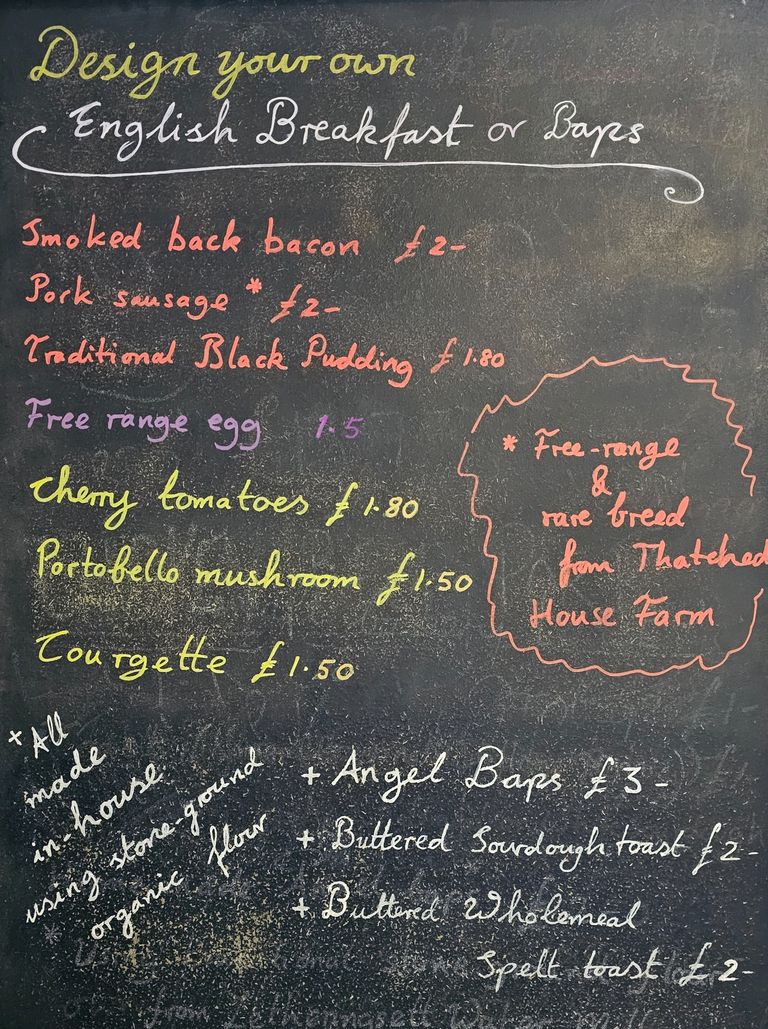 Design your own
English Breakfast or Baps
Smoked back bacon £2-
Pork sausage * £2-
Traditional Black Pudding £1.80
Free range egg 1.5
Cherry tomatoes £1.80
Portobello mushroom £1.50
Courgette £1.50
* Free-range
&
rare breed
from Thatched
House Farm
+ All
made
in-house
using stone-ground
organic flour
+ Angel Baps £3-
+ Buttered Sourdough toast £2-
+ Buttered Wholemeal
Spelt toast £2-